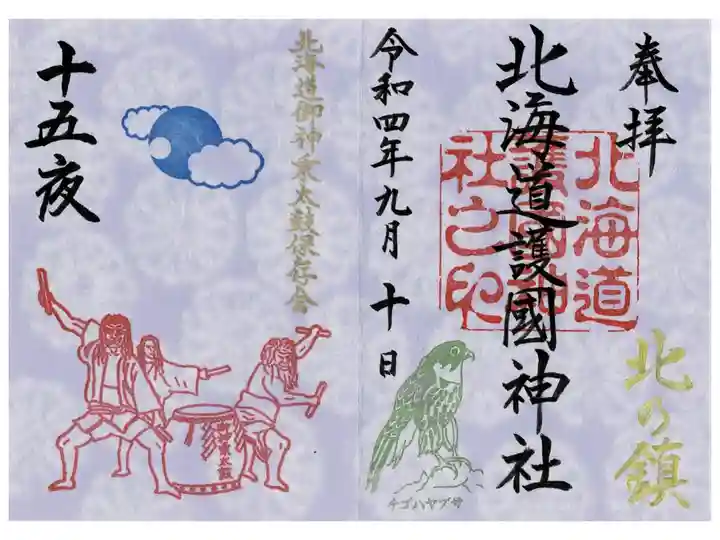 奉拝
北の鎮
北海道護國神社
北海道
護國神
社之印
令和四年九月十日
チゴハヤブサ
北海道御神乗太鼓保存会
十五夜
御神乗太鼓